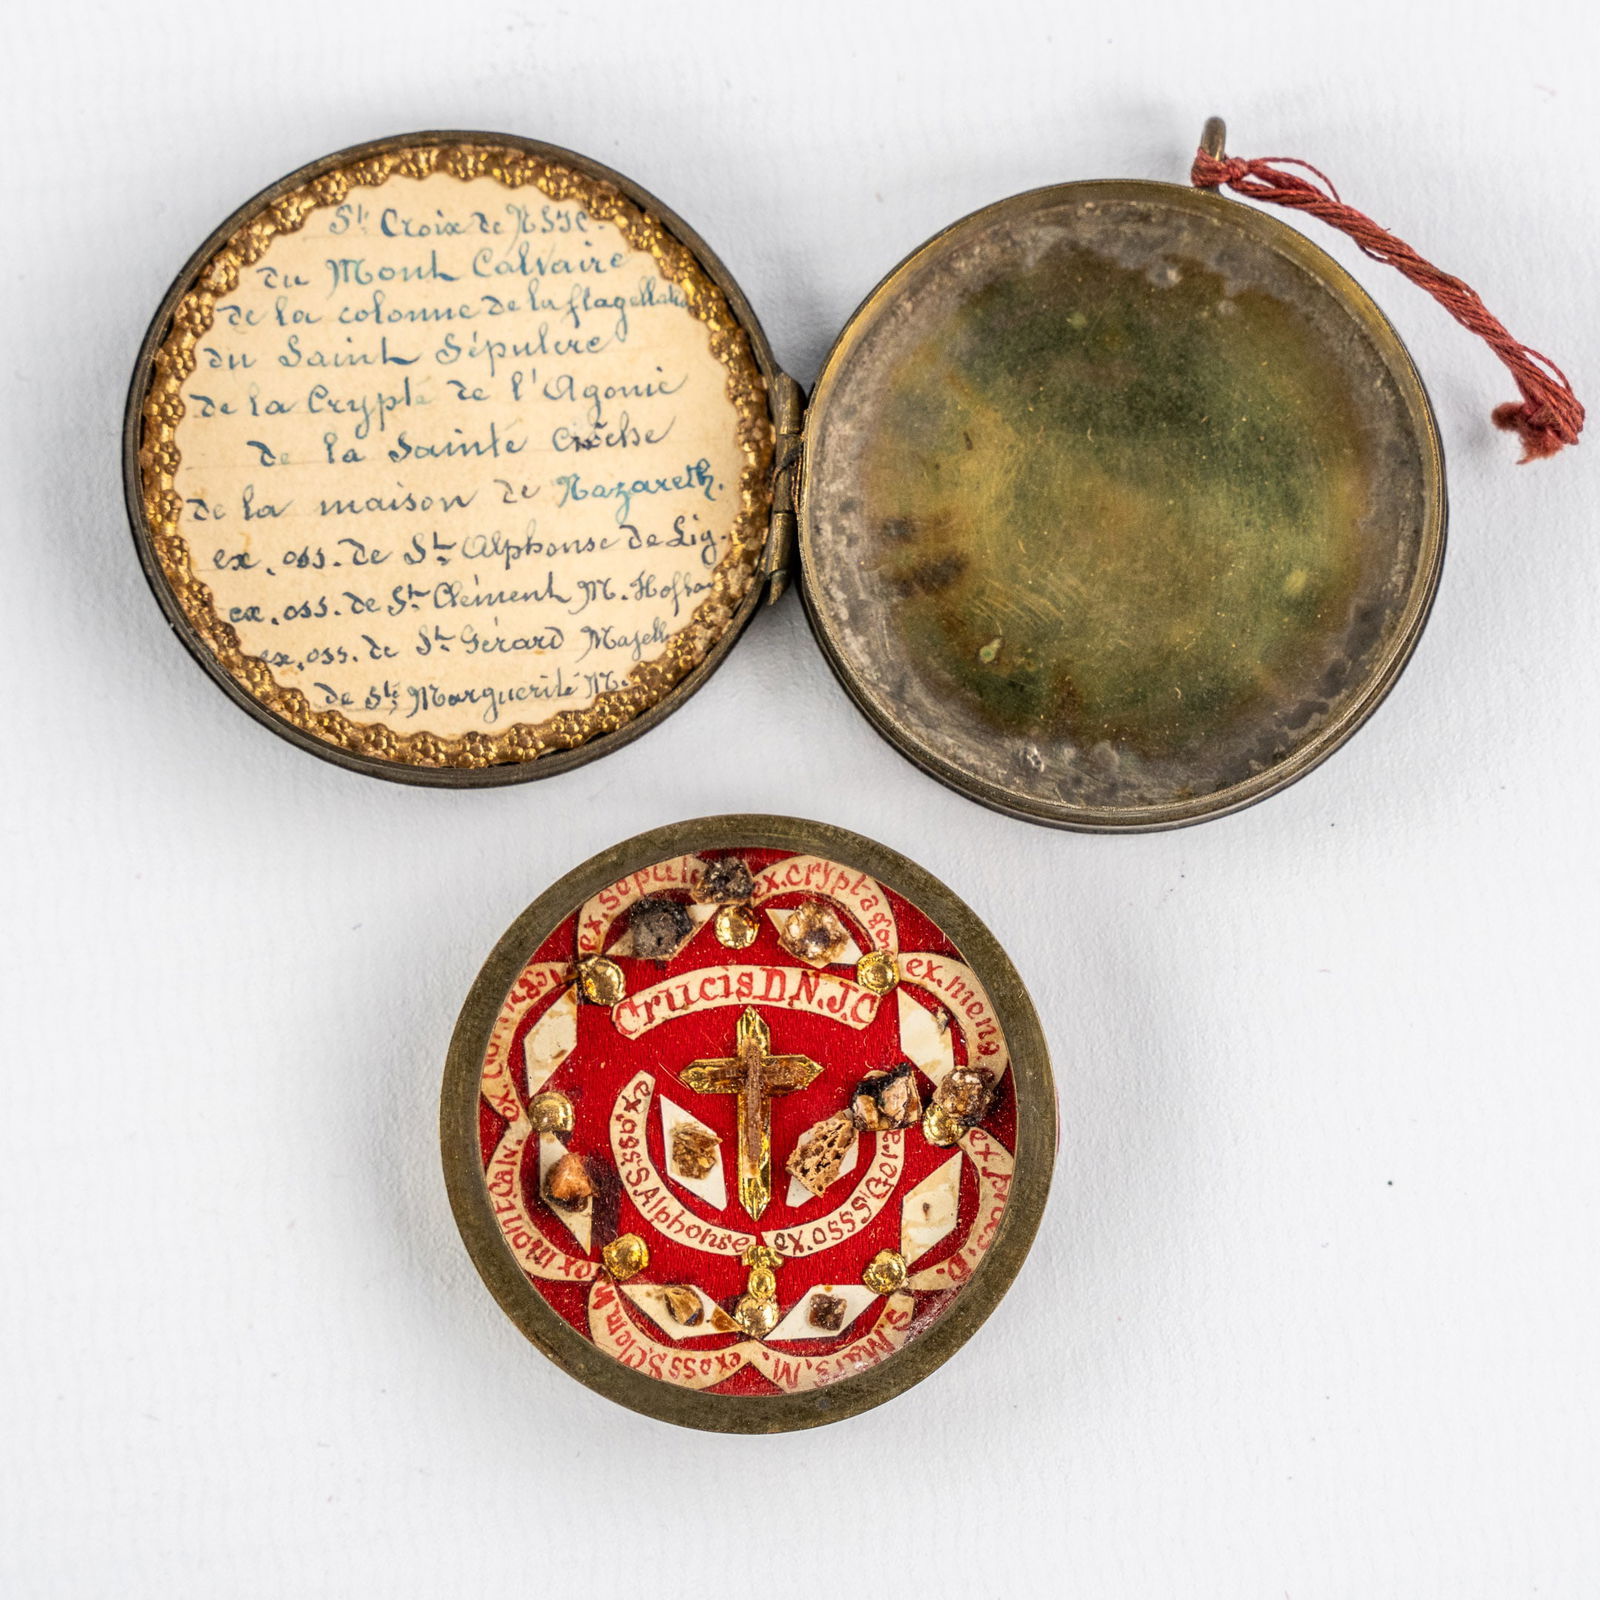 Ste Croix de NSJC.
du Mont Calvaire
de la colonne de la flagellation
du Saint Sépulcre
de la Crypte de l'Agonie
de la Sainte Crèche
de la maison de Nazareth.
ex. oss. de St. Alphonse de Lig.
ex. oss. de St Clément M. Hofba
ex. oss. de St Gérard Majell
de Ste Marguerite M.
ex. sepulc
ex. crypt ago
ex. mens
Crucis D.N.J.C
ex. oss. S. Alphonse
ex. oss S Gera
ex mont. Calv.
ex oss S. Clem. M
S. Marg. M.